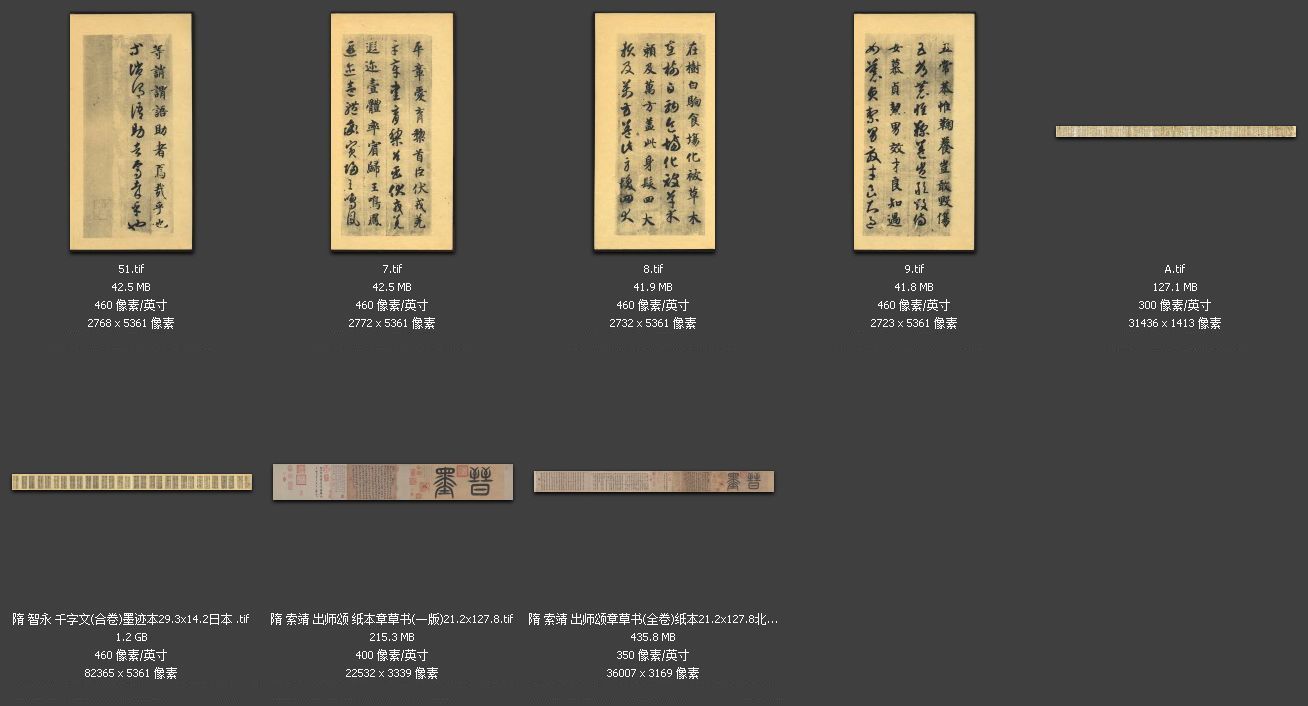 等誚謂語助者焉哉乎也
等誚謂語助者焉哉乎也
51.tif
42.5 MB
460 像素/英寸
2768 x 5361 像素
平章愛育黎首臣伏戎羌
平章愛育黎首臣伏戎羌
遐迩壹體率賓歸王鳴鳳
遐迩壹體率賓歸王鳴鳳
7.tif
42.5 MB
460 像素/英寸
2772 x 5361 像素
在樹白駒食場化被草木
在樹白駒食場化被草木
賴及萬方蓋此身髮四大
賴及萬方蓋此身髮四大
8.tif
41.9 MB
460 像素/英寸
2732 x 5361 像素
五常恭惟鞠養豈敢毀傷
五常恭惟鞠養豈敢毀傷
女慕貞絜男效才良知過
女慕貞絜男效才良知過
9.tif
41.8 MB
460 像素/英寸
2723 x 5361 像素
A.tif
127.1 MB
300 像素/英寸
31436 x 1413 像素
隋 智永 千字文(合卷)墨迹本29.3x14.2日本 .tif
1.2 GB
460 像素/英寸
82365 x 5361 像素
晉墨
隋 索靖 出师颂 纸本章草书(一版)21.2x127.8.tif
215.3 MB
400 像素/英寸
22532 x 3339 像素
晉墨
隋 索靖 出师颂章草书(全卷)纸本21.2x127.8北...
435.8 MB
350 像素/英寸
36007 x 3169 像素